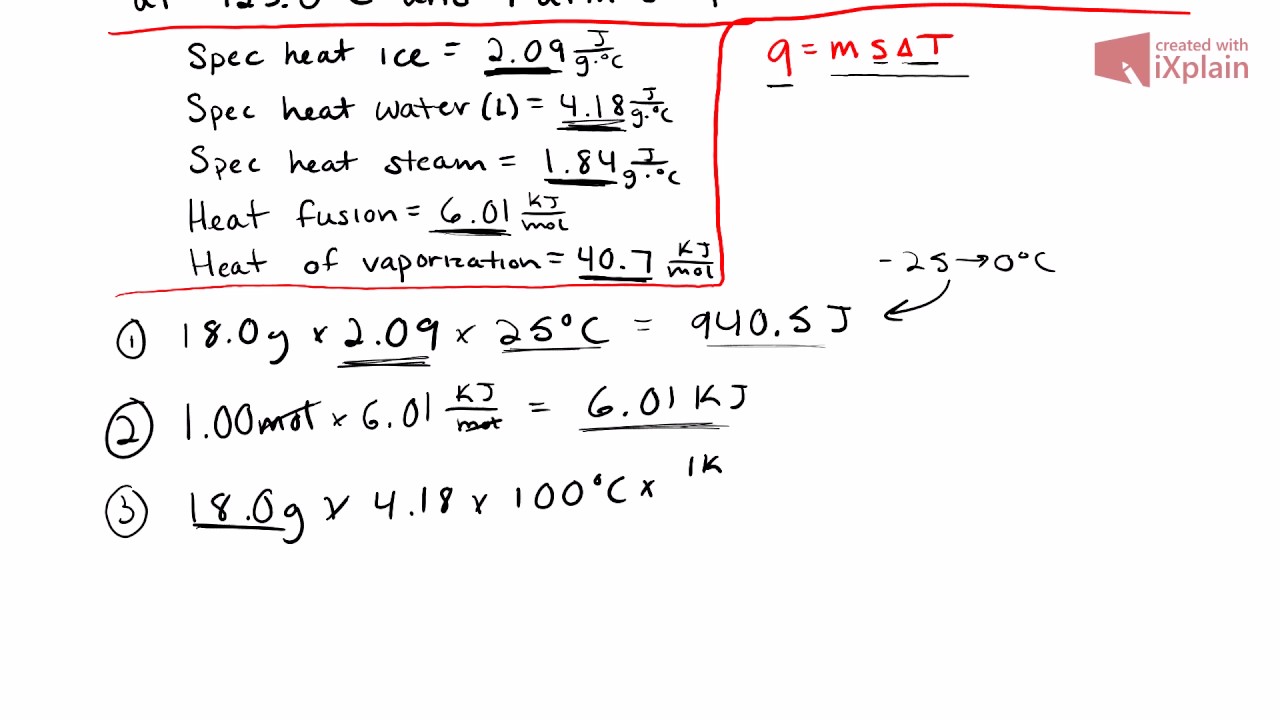 at 125.0°C and 1 atm
Spec heat ice = 2.09 J/g·°C
q = m s Δ T
created with
iXplain
Spec heat water (L) = 4.18 J/g·°C
Spec heat steam = 1.84 J/g·°C
Heat fusion = 6.01 KJ/mol
Heat of vaporization = 40.7 KJ/mol
-25 → 0°C
① 18.0g x 2.09 x 25°C = 940.5 J
② 1.00 mol x 6.01 KJ/mol = 6.01 KJ
③ 18.0g x 4.18 x 100°C x 1K